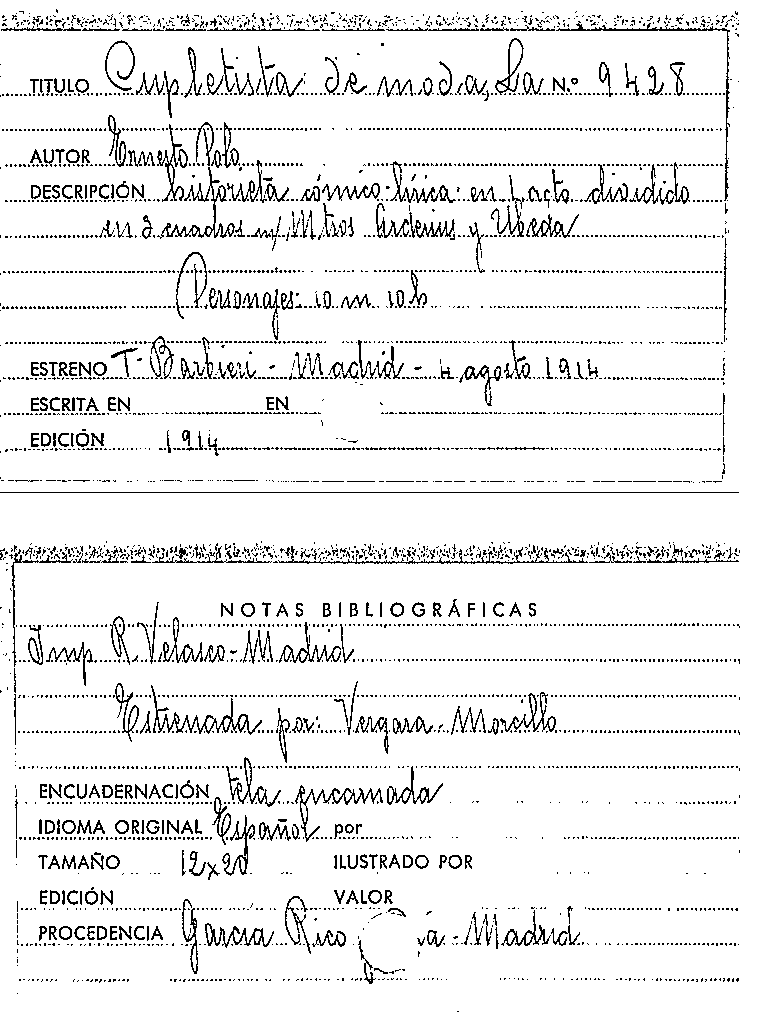 TITULO Cupletista de moda, La N.º 9428
AUTOR Ernesto Polo
DESCRIPCIÓN historieta cómico-lírica: en 1 acto dividido
en 3 cuadros m/ Mtros Arderius y Ubeda
Personajes: 10 m 10 h
ESTRENO T- Barbieri - Madrid - 4 agosto 1914
ESCRITA EN EN
EDICIÓN 1914
NOTAS BIBLIOGRÁFICAS
Imp R. Velasco - Madrid
Estrenada por: Vergara - Morcillo
ENCUADERNACIÓN tela encarnada
IDIOMA ORIGINAL Español por
TAMAÑO 12x20 ILUSTRADO POR
EDICIÓN VALOR
PROCEDENCIA García Rico - Madrid